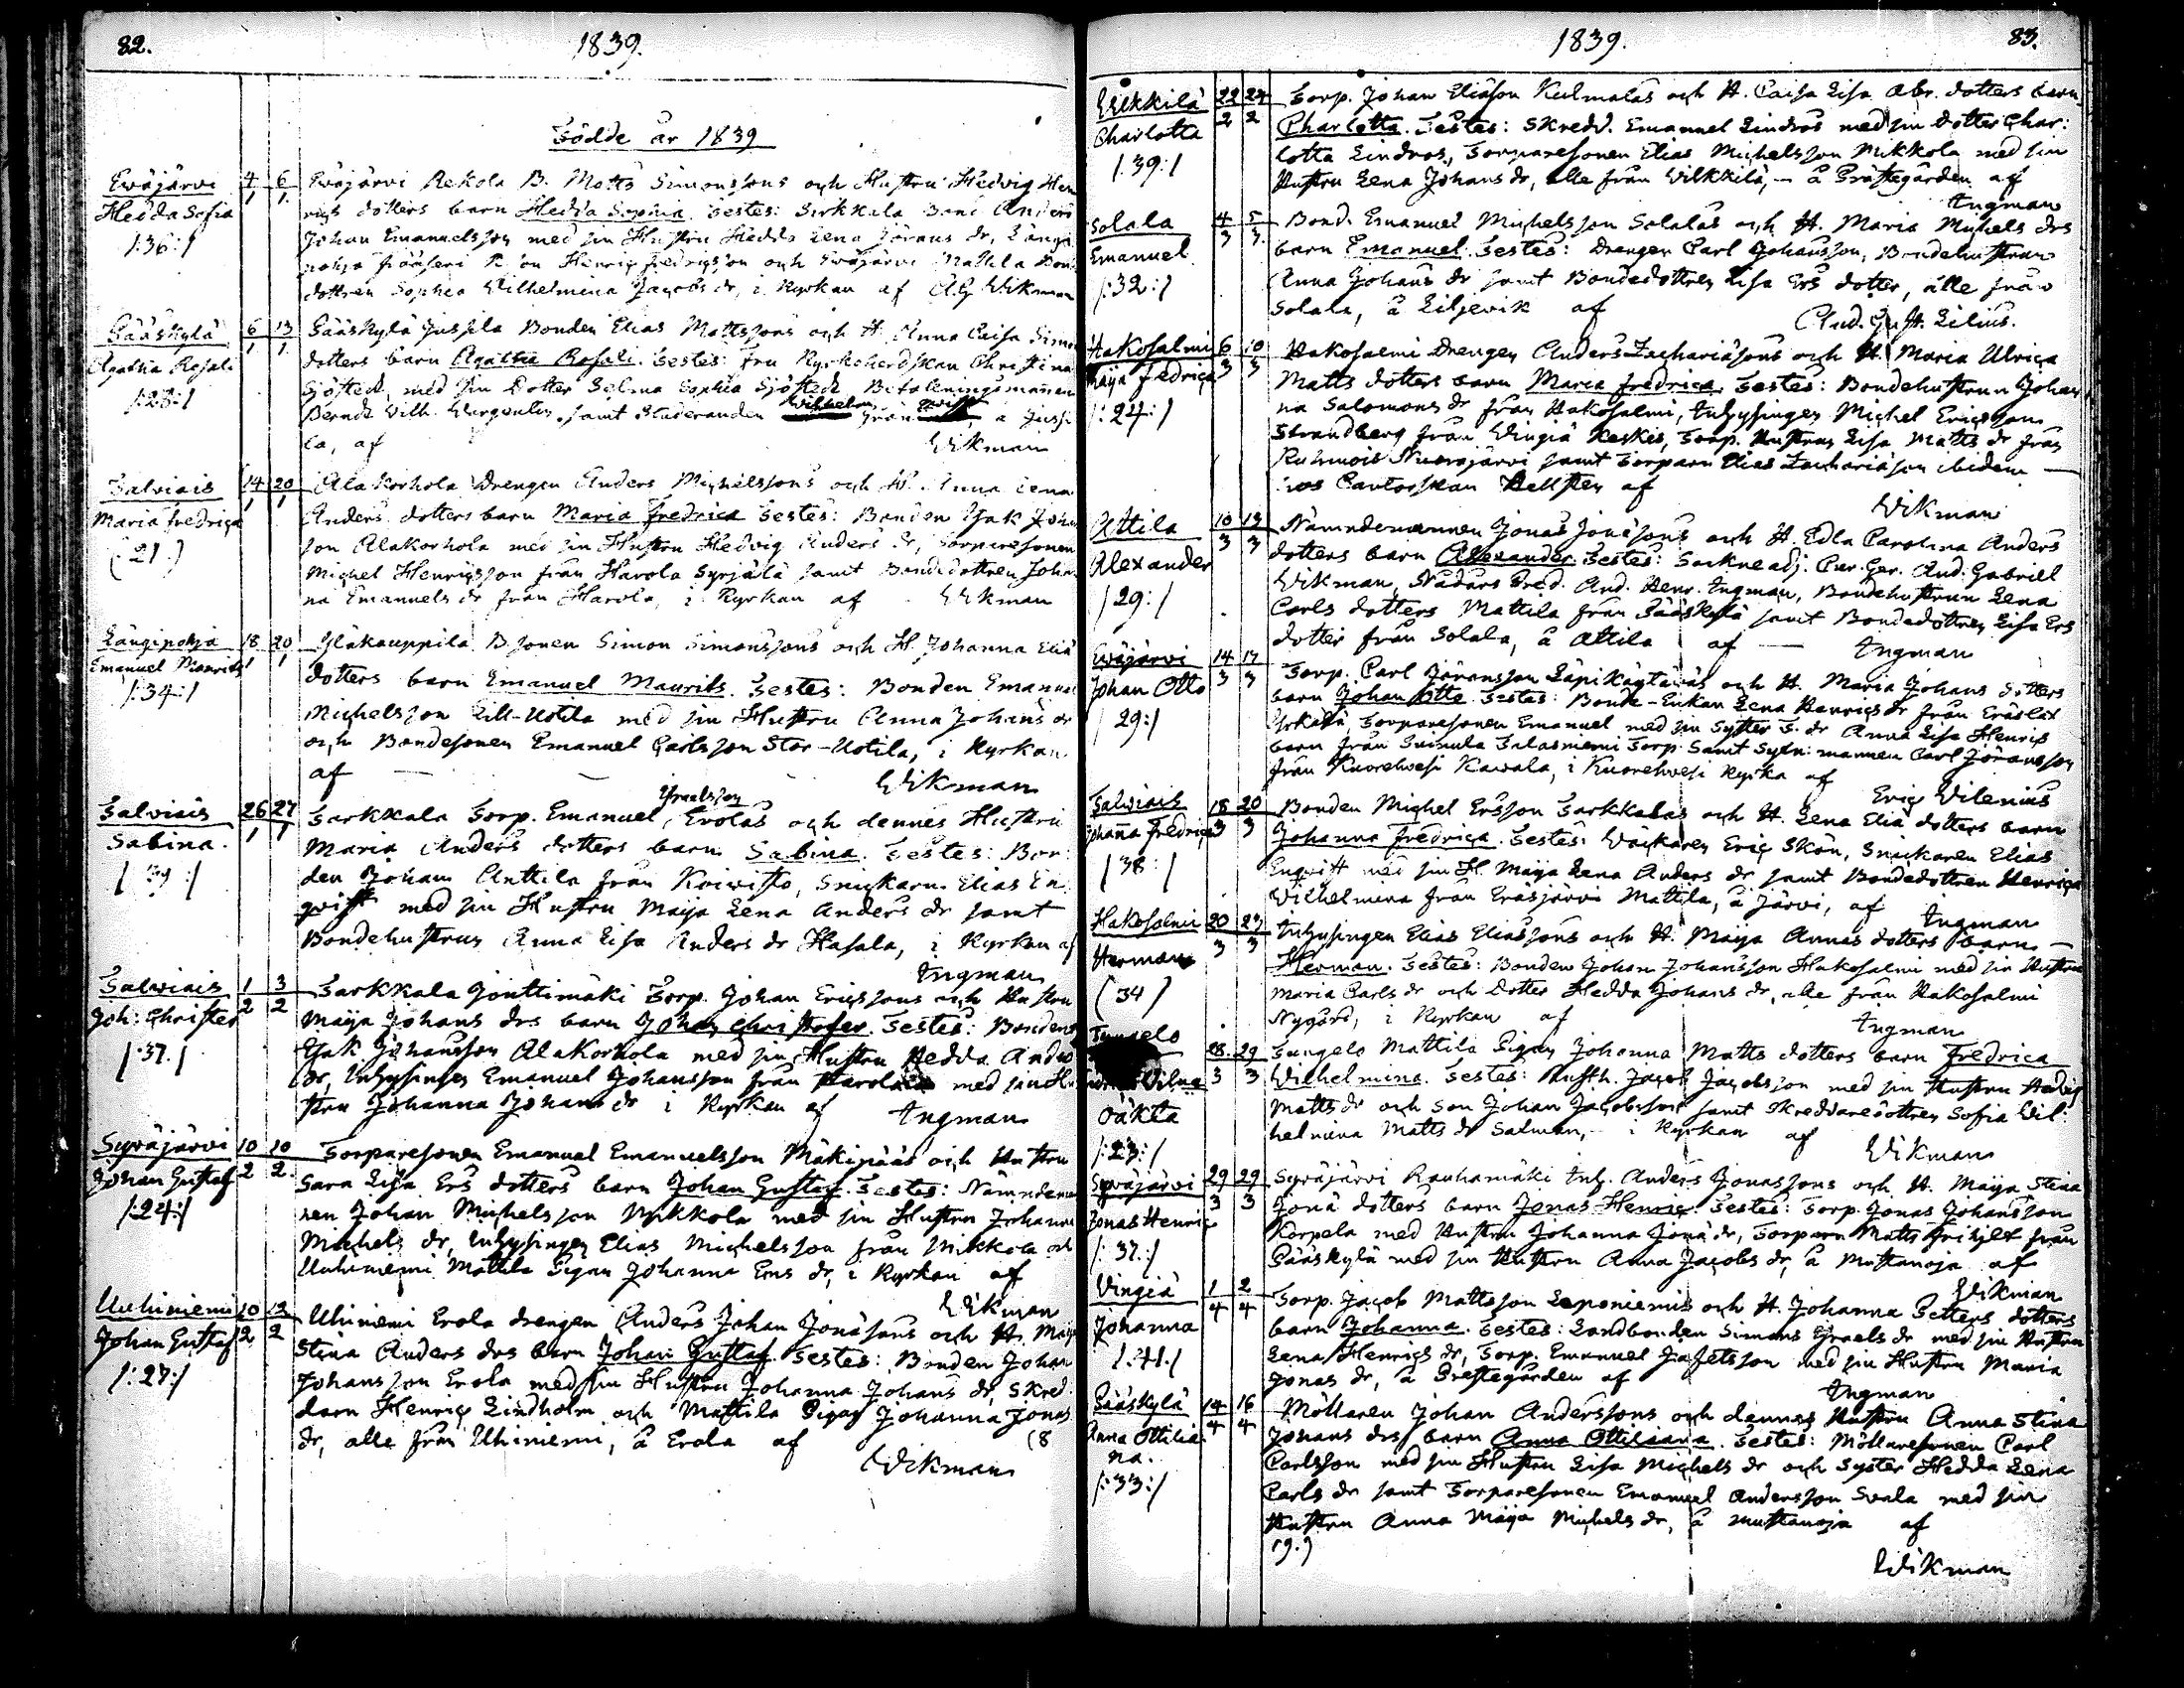 82.
1839.
Födde år 1839
Eräjärvi 4/1 6/1 Eräjärvi Rekola B. Matts Simonssons och Hustru Hedvig Hen
Hedda Sofia
/:36:/
rics dotters barn Hedda Sophia. Testes: Sirkkala Bond Anders
Johan Emanuelsson med sin Hustru Hedda Lena Jörans dr, Längi
pohja Henric Fredricsson och Eräjärvi Mattila Bon
dottren Sophia Wilhelmina Jacobs dr, i Kyrkan af A.G. Wikman
Sääskylä 6/1 13/1 Sääskylä Jussila Bonden Elias Mattssons och H. Anna Caisa Simons
Agatha Rosali
/:28:/
dotters barn Agatha Rosali. Testes: Fru Kyrkoherdskan Christina
Sjöstedt, med sin Dotter Selma Sophia Sjöstedt, Befalningsmannen
Berndt Wilh. Wargentin, samt Studeranden Wilhelm från, å Jussi
la, af Wikman
Talviais 14/1 20/1 Alakorhola Drengen Anders Michelssons och H. Anna Lena
Maria Fredrica
(21)
Anders dotters barn Maria Fredrica Testes: Bonden Isak Johans
son Alakorhola med sin Hustru Hedvig Anders dr, Torparesonen
Michel Henricsson från Harola Syrjälä samt Bondedottren Johan
na Emanuels dr från Harola, i Kyrkan af Wikman
Längipohja 18/1 20/1 Yläkauppila B.sonen Simon Simonssons och H. Johanna Eliä
Emanuel Maurits
/:34:/
dotters barn Emanuel Maurits. Testes: Bonden Emanuel
Michelsson Lill-Uotila med sin Hustru Anna Johans dr
och Bondesonen Emanuel Carlsson Stor-Uotila, i Kyrkan
af Wikman
Talviais 26/1 27/1 Sarkkala Torp. Emanuel Israelsson Erolas och dennes Hustru
Sabina.
/:39:/
Maria Anders dotters barn Sabina. Testes: Bon
den Johan Anttila från Koivisto, Snickarn Elias En
qvist med sin Hustru Maija Lena Anders dr samt
Bondehustrun Anna Lisa Anders dr Hasala, i Kyrkan af
Ingman
Talviais 1/2 3/2 Sarkkala Jönttimäki Torp. Johan Ericssons och Hustru
Joh: Christer
/:37:/
Maija Johans drs barn Johan Christofer. Testes: Bonden
Isak Johansson Alakorhola med sin Hustru Hedda Anders
dr, Inhysingen Emanuel Johansson från Harola med sin Hu
stru Johanna Johans dr i Kyrkan af Ingman
Syväjärvi 10/2 10/2 Torparesonen Emanuel Emanuelsson Mäkipääs och Hustru
Johan Gustaf
/:24:/
Sara Lisa Ers dotters barn Johan Gustaf. Testes: Nämndeman
nen Johan Michelsson Mikkola med sin Hustru Johanna
Michels dr, Inhysingen Elias Michelsson från Mikkola och
Uuhiniemi Mattila Pigan Johanna Ers dr, i Kyrkan af
Wikman
Uuhiniemi 10/2 13/2 Uhiniemi Erola drengen Anders Johan Jonässons och H. Maija
Johan Gustaf
/:27:/
Stina Anders drs barn Johan Gustaf. Testes: Bonden Johan
Johansson Erola med sin Hustru Johanna Johans dr, Skred
daren Henric Lindholm och Mattila Pigan Johanna Jonas
dr, alle från Uhiniemi, å Erola af (8
Wikman
1839.
83.
Vilkkilä 22/2 24/2 Torp. Johan Eliäson Kulmalas och H. Caisa Lisa Abr. dotters barn
Charlotta
/:39:/
Charlotta. Testes: Skredd. Emanuel Lindros med sin Dotter Char:
lotta Lindros, Torparesonen Elias Michelsson Mikkola med sin
Hustru Lena Johans dr, alle från Vilkkilä, — å Prästegården af
Ingman
Solala 4/3 5/3 Bond. Emanuel Michelsson Solalas och H. Maria Michels drs
Emanuel
/:32:/
barn Emanuel. Testes: Drengen Carl Johansson, Bondehustrun
Anna Johans dr samt Bondedottren Lisa Ers dotter, alle från
Solala, å Liljevik af And. Gust. Lilius.
Hakosalmi 6/3 10/3 Hakosalmi Drengen Anders Zachariäsons och H. Maria Ulrica
Maija Fedrica
/:24:/
Matts dotters barn Maria Fredrica. Testes: Bondehustrun Johan
na Salomons dr från Hakosalmi, Inhysingen Michel Ericsson
Strandberg från Vingiä Keskis, Torp. Hustrun Lisa Matts dr från
Kuhmois Nuorojärvi samt Torparn Elias Zachariäson ibidem —
hos Cantorskan Hellsten af
Wikman
Attila 10/3 13/3 Nämndemannen Jonas Jonässons och H. Edla Carolina Anders
Alexander
/29:/
dotters barn Alexander. Testes: Sockneadj. Cur. Ger. And. Gabriel
Wikman, Nådårs Pred. And. Henr. Ingman, Bondehustrun Lena
Carls dotters Mattila från Sääskylä samt Bondedottren Lisa Ers
dotter från Solala, å Attila af — Ingman
Eräjärvi 14/3 17/3 Torp. Carl Jöransson Läpikäytäväs och H. Maria Johans dotters
Johan Otto
/29:/
barn Johan Otto. Testes: Bonde-Enkan Lena Henrics dr från Eräslax
Yrkälä Torparesonen Emanuel med sin Syster T. dr Anna Lisa Henrics
barn från Suinula Salasniemi Torp. samt Sytn: mannen Carl Jöransson
från Kuorehvesi Kawala, i Kuorehvesi Kyrka af
Eric Vilenius
Talviais 18/3 20/3 Bonden Michel Ersson Sarkkalas och H. Lena Elia dotters barn
Johanna Fredrica
/38:/
Johanna Fredrica. Testes: Wäckaren Eric Skön, Snickaren Elias
Enqvist med sin H. Maija Lena Anders dr samt Bondedottren Henrica
Wilhelmina från Eräsjärvi Mattila, å Järvi, af Ingman
Hakosalmi 20/3 24/3 Inhysingen Elias Eliassons och H. Maija Annas dotters barn —
Herman
(34)
Herman. Testes: Bonden Johan Johansson Hakosalmi med sin Hustru
Maria Carls dr och Dotter Hedda Johans dr, alle från Hakosalmi
Nygård, i Kyrkan af Ingman
28/3 29/3 Sungelo Mattila Pigan Johanna Matts dotters barn Fredrica
Vilma
Oäkta
/:23:/
Wilhelmina. Testes: Husth. Jacob Jacobsson med sin Hustru Hedvig
Matts dr och son Johan Jacobsson samt Skreddaredottren Sofia Wil:
helmina Matts dr Salman, i Kyrkan af
Wikman
Syväjärvi 29/3 29/3 Syväjärvi Rauhamäki Inh. Anders Jonassons och H. Maija Stina
Jonas Henric
/:37:/
Jonä dotters barn Jonas Henric. Testes: Torp. Jonas Johansson
Korpela med Hustru Johanna Jonä dr, Torparn Matts från
Sääskylä med sin Hustru Anna Jacobs dr, å Mustanoja af
Wikman
Vingiä 1/4 2/4 Torp. Jacob Mattsson Leponiemis och H. Johanna Petters dotters
Johanna
/:41:/
barn Johanna. Testes: Landbonden Simons Israels dr med sin Hustru
Lena Henrics dr, Torp. Emanuel Jafetsson med sin Hustru Maria
Jonas dr, å Prestegården af
Ingman
Sääskylä 14/4 16/4 Möllaren Johan Anderssons och dennes Hustru Anna Stina
Anna Ottilia
na.
/:33:/
Johans drs barn Anna Ottiliana. Testes: Möllaresonen Carl
Carlsson med sin Hustru Lisa Michels dr och Syster Hedda Lena
Carls dr samt Torparesonen Emanuel Andersson Svala med sin
Hustru Anna Maija Michels dr, å Mustanoja af
19.)
Wikman